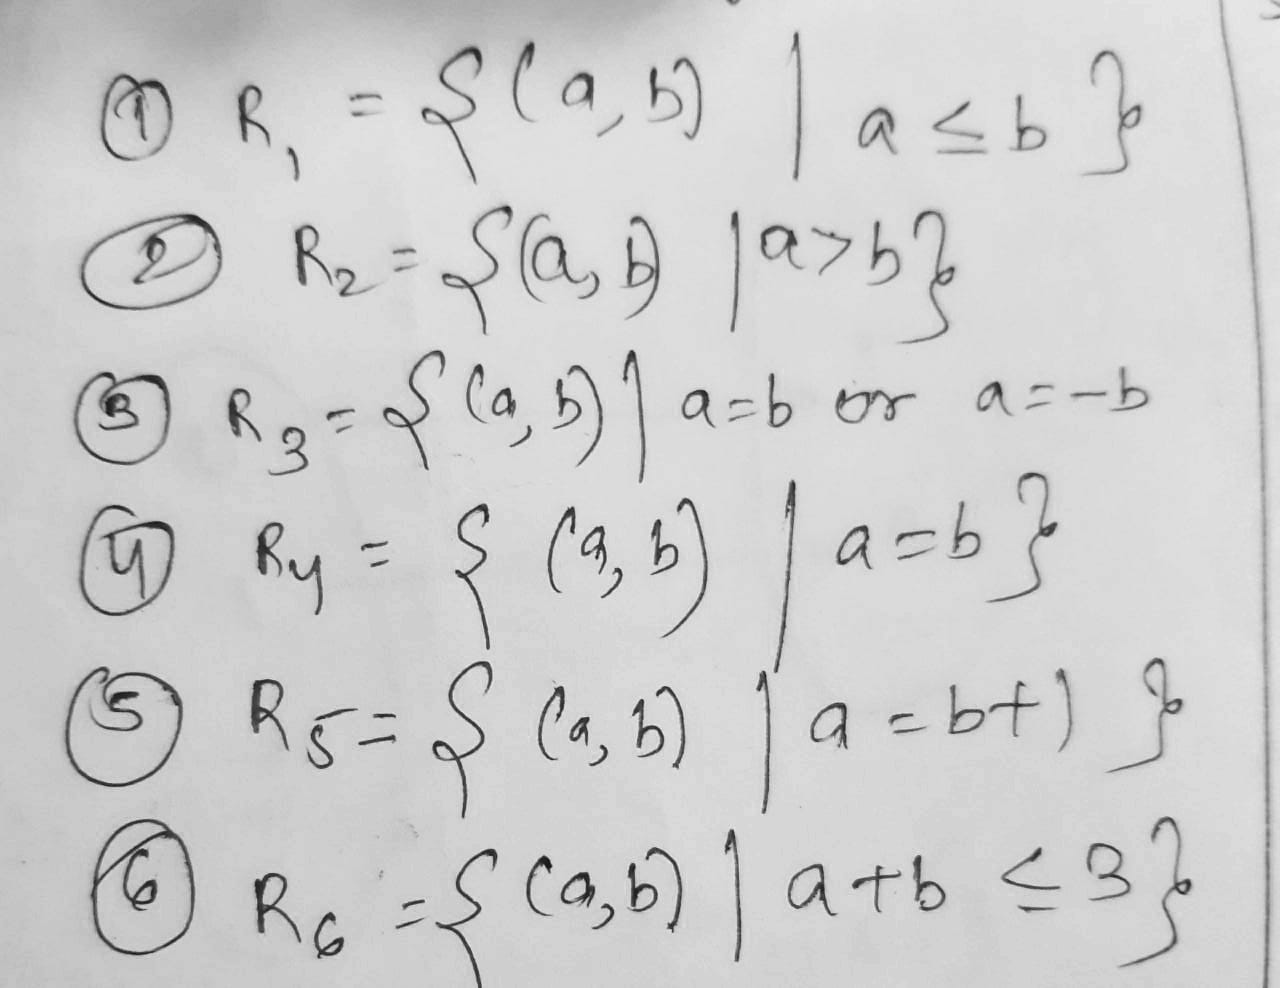 ① R₁ = {(a, b) | a ≤ b}
② R₂ = {(a, b) | a > b}
③ R₃ = {(a, b) | a = b or a = -b
④ R₄ = {(a, b) | a = b}
⑤ R₅ = {(a, b) | a = b + 1}
⑥ R₆ = {(a, b) | a + b ≤ 3}